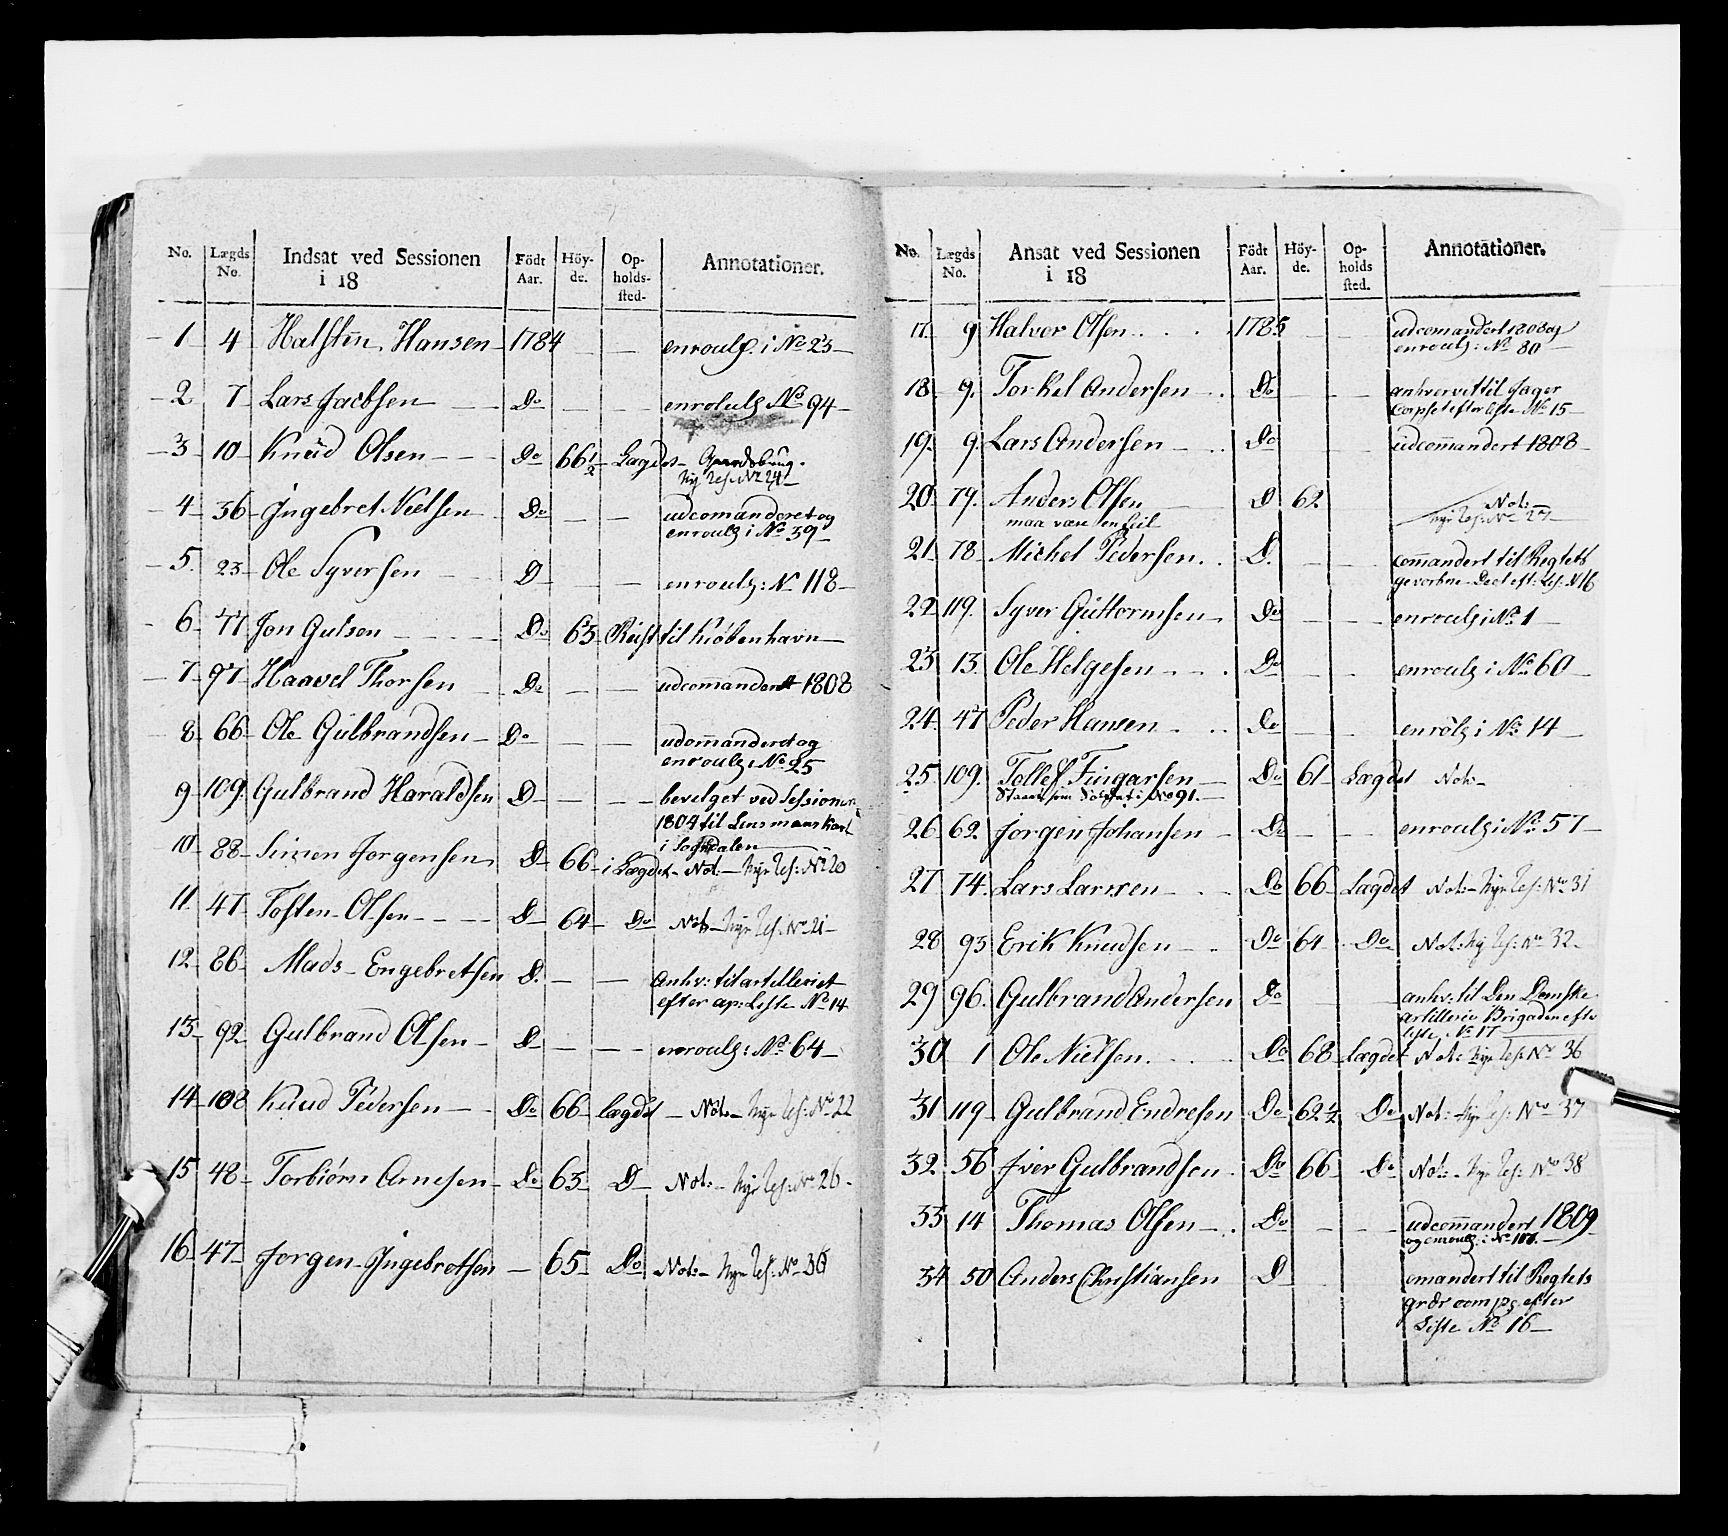 No. Lægds No. Indsat ved Sessionen i 18 Födt Aar. Höy-de. Op-holds-sted. Annotationer.
1 4 Halsten Hansen 1784 — — enroulg. i No 23
2 7 Lars Jacbsen Do — — enroulg No 94
3 10 Knud Olsen Do 66½ Lægdet Gaardsbrug.
Nye Res: No 24
4 36 Jngebret Nielsen Do — — udcomanderet og
enroulg i No 39
5. 23 Ole Syversen D — — enroulg: No 118
6 77 Jon Gulsen Do 63 Reist til Kiøbenhavn
7 97 Haavel Thorsen Do — — udcommandert 1808
8 66 Ole Gulbrandsen Do — — udcommanderet og
enroulg i No 25
9 109 Gulbrand Haraldsen D — — bevelget ved Sessionen
1804 til Lensmans Karl
i Sognedalen
10 88 Simen Jorgensen D 66 i Lægdet Not: Nye Res: No 20
11 47 Tosten Olsen D 64 Do Not: Nye Res: No 21
12 86 Mads Engebretsen D. — — anhv: til artilleriet
efter ap: Liste No 14
13 92 Gulbrand Olsen D — — enroulg: No 64
14 108 Knud Pedersen Do 66 Lægdet Not: Nye Res: No 22
15 48 Torbiörn Arnesen Do 63 D Not: Nye Res: No 26
16 47 Jorgen Jngebretsen — 65 Do Not: Nye Res: No 30
No. Lægds No. Ansat ved Sessionen i 18 Födt Aar. Höy-de. Op-holds sted. Annotationer.
17. 9 Halvor Olsen 1785 — — udcomandert 1808 og
enroulg: No 80
18 9. Torkel Andersen Do — — anhvervet til Jager
Corpset efter Liste No 15
19. 9. Lars Andersen Do — — udcommandert 1808
20 79. Anders Olsen D 62 Not:
maa være en feil Nye Res: No 27
21 78 Michel Pedersen D. — — commandert til Regtets
gevorbne Deel eft: Les: N 16
22 119. Syver Guttormsen Do — — enroulg i No 1
23 13. Ole Helgesen Do — — enroulg i No 60
24 47 Peder Hansen Do — — enrolg i No 14
25. 109. Tollef Fingarsen Do 61 Lægdet Not:
Staaer som Soldat i No 91.
26 62 Jorgen Johansen Do — — enroulg i No 57
27 74. Lars Larsen Do 66 Lægdet Not: Nye Res: No 31
28 93 Erik Knudsen Do 64 Do Not: Nye Res: No 32
29 96. Gulbrand Andersen Do — — anhv: til Den Donske
artillerie Brigaden efter
Liste No 17
30 1 Ole Nielsen Do 68 Lægdet Not: Nye Res: No 36
31 119 Gulbrand Endresen Do 62½ Do Not: Nye Res: No 37
32 56 Jver Gulbrandsen Do 66 Do Not: Nye Res: No 38
33 14 Thomas Olsen Do — — udcommandert 1809
og enroulg: i No 100.
34 50 Anders Christiansen D omandert til Regtets
grdr compg efter
Liste No 16